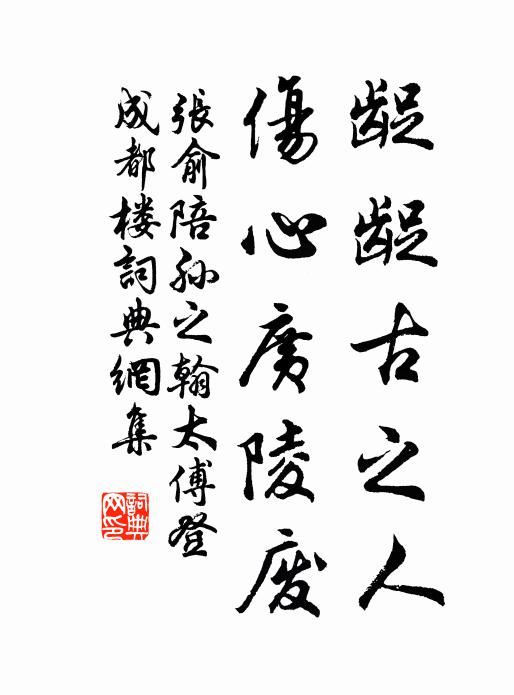 齪齪古之人
傷心廣陵廢
張俞陪孙之翰太傅登
成都楼詞典網集
詞典网印